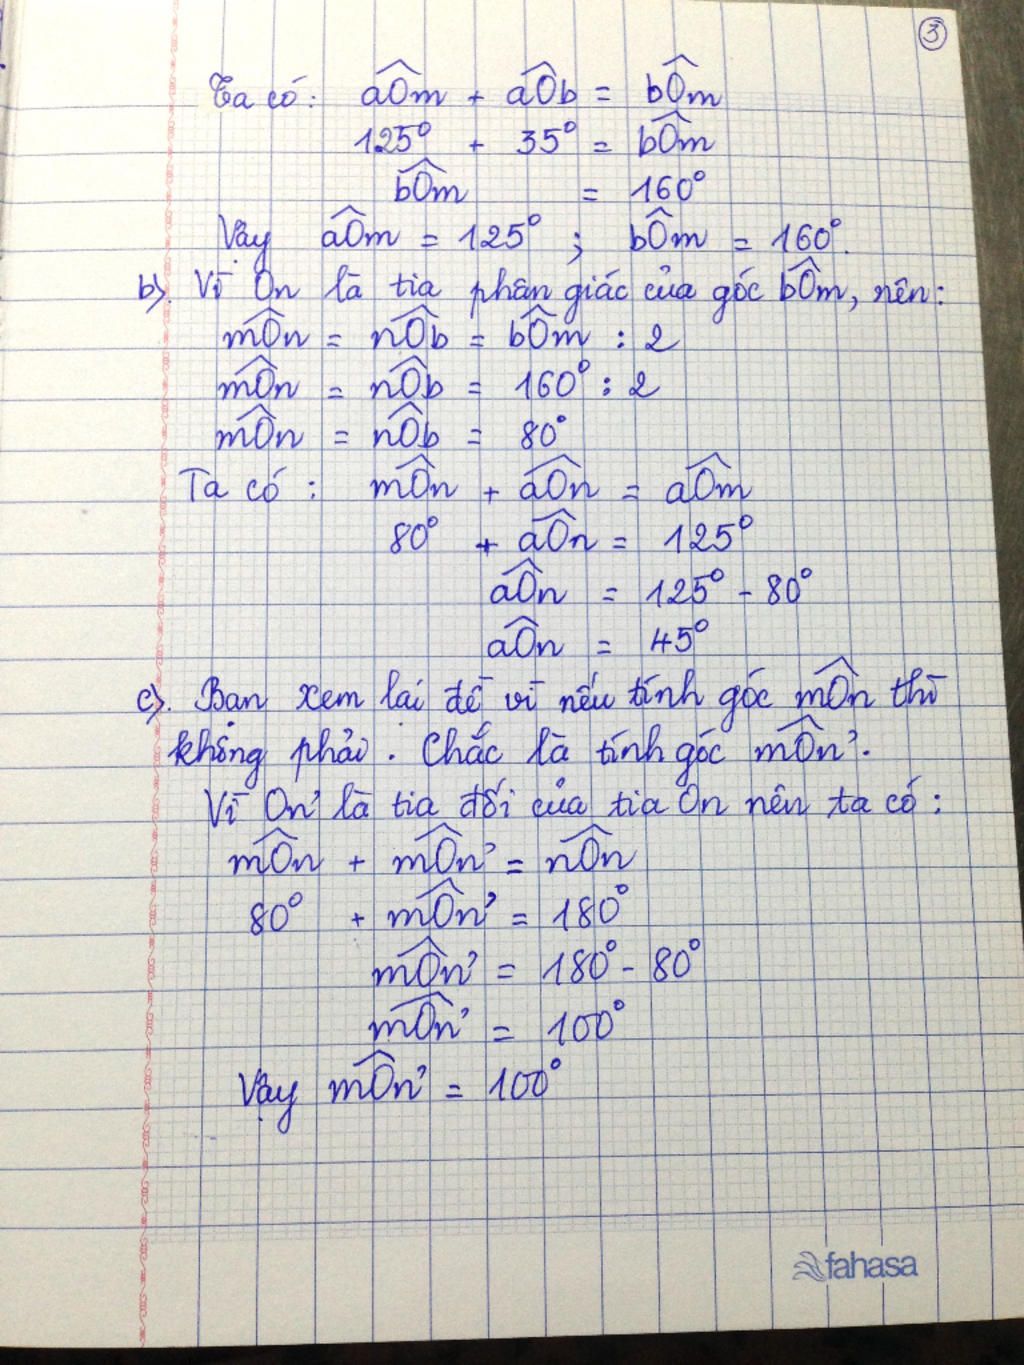 3
Ta có: aÔm + aÔb = bÔm
125° + 35° = bÔm
bÔm = 160°
Vậy aÔm = 125° ; bÔm = 160°.
b). Vì On là tia phân giác của góc bÔm, nên:
mÔn = nÔb = bÔm : 2
mÔn = nÔb = 160° : 2
mÔn = nÔb = 80°
Ta có : mÔn + aÔn = aÔm
80° + aÔn = 125°
aÔn = 125° - 80°
aÔn = 45°
c). Bạn xem lại đề vì nếu tính góc mÔn thì
không phải. Chắc là tính góc mÔn'.
Vì On' là tia đối của tia On nên ta có :
mÔn + mÔn' = nÔn
80° + mÔn' = 180°
mÔn' = 180° - 80°
mÔn' = 100°
Vậy mÔn' = 100°
fahasa